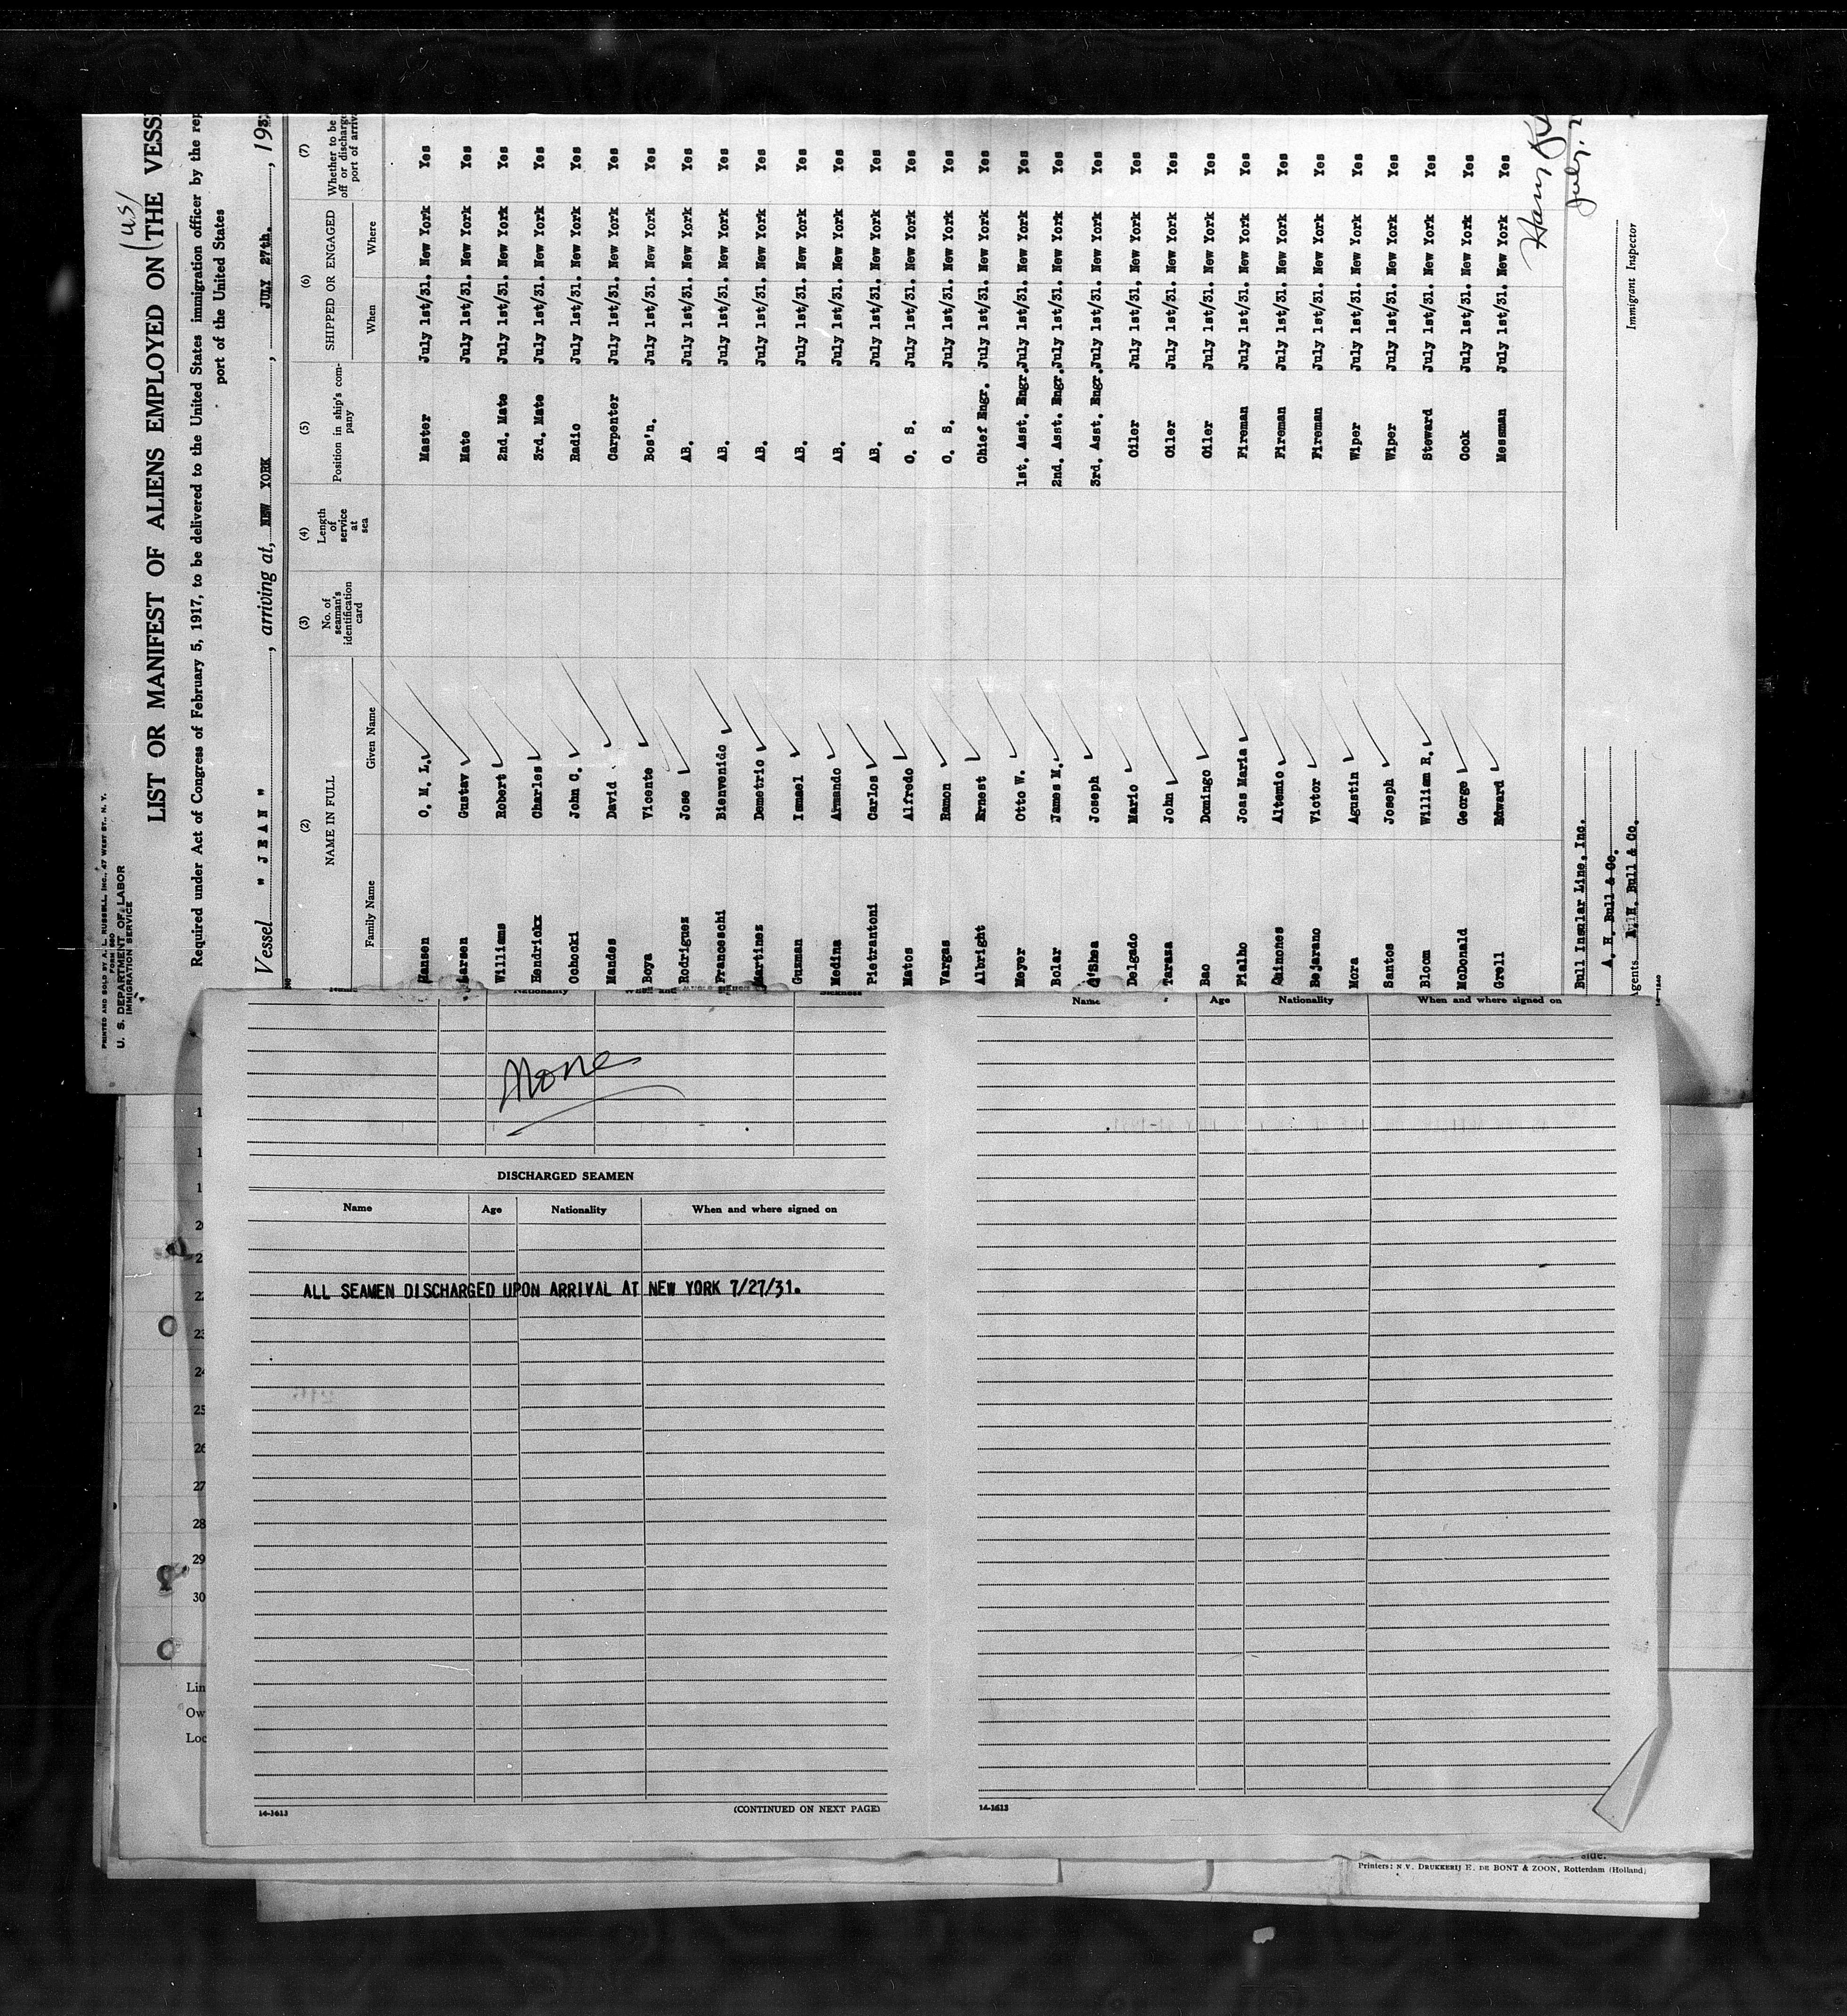 PRINTED AND SOLD BY A. L. RUSSELL, INC., 47 WEST ST., N. Y.
FORM 680
U. S. DEPARTMENT OF LABOR
IMMIGRATION SERVICE
(U.S)
LIST OR MANIFEST OF ALIENS EMPLOYED ON THE VESS
Required under Act of Congress of February 5, 1917, to be delivered to the United States immigration officer by the rep
port of the United States
Vessel " JEAN " , arriving at, NEW YORK , JULY 27th. , 193
(2) (3) (4) (5) (6) (7)
NAME IN FULL No. of seaman's identification card Length of service at sea Position in ship's com- pany SHIPPED OR ENGAGED Whether to be off or discharge port of arriva
Family Name Given Name When Where
Hansen C. M. L. Master July 1st/31. New York Yes
Larsen Gustav Mate July 1st/31. New York Yes
Williams Robert 2nd. Mate July 1st/31. New York Yes
Hendrickx Charles 3rd. Mate July 1st/31. New York Yes
Ochocki John C. Radio July 1st/31. New York Yes
Mandes David Carpenter July 1st/31. New York Yes
Boya Vicente Bos'n. July 1st/31. New York Yes
Rodriguez Jose AB. July 1st/31. New York Yes
Franceschi Bienvenido AB. July 1st/31. New York Yes
Martinez Demetrio AB. July 1st/31. New York Yes
Guzman Ismael AB. July 1st/31. New York Yes
Medina Armando AB. July 1st/31. New York Yes
Pietrantoni Carlos AB. July 1st/31. New York Yes
Matos Alfredo O. S. July 1st/31. New York Yes
Vargas Ramon O. S. July 1st/31. New York Yes
Albright Ernest Chief Engr. July 1st/31. New York Yes
Meyer Otto W. 1st. Asst. Engr. July 1st/31. New York Yes
Bolar James M. 2nd. Asst. Engr. July 1st/31. New York Yes
O'Shea Joseph 3rd. Asst. Engr. July 1st/31. New York Yes
Delgado Mario Oiler July 1st/31. New York Yes
Tarasa John Oiler July 1st/31. New York Yes
Bao Domingo Oiler July 1st/31. New York Yes
Fialho Joas Maria Fireman July 1st/31. New York Yes
Quinones Altemio Fireman July 1st/31. New York Yes
Bejarano Victor Fireman July 1st/31. New York Yes
Mora Agustin Wiper July 1st/31. New York Yes
Santos Joseph Wiper July 1st/31. New York Yes
Bloom William R. Steward July 1st/31. New York Yes
McDonald George Cook July 1st/31. New York Yes
Grell Edward Messman July 1st/31. New York Yes
Bull Insular Line, Inc.
A. H. Bull & Co.
Agents A. H. Bull & Co.
Immigrant Inspector
July. 2
Name Nationality When and Sickness
None
DISCHARGED SEAMEN
Name Age Nationality When and where signed on
ALL SEAMEN DISCHARGED UPON ARRIVAL AT NEW YORK 7/27/31.
14-1613
(CONTINUED ON NEXT PAGE)
Name Age Nationality When and where signed on
14-1613
23
24
25
26
27
28
29
30
Lin
Ow
Loc
side.
Printers: N.V. DRUKKERIJ E. DE BONT & ZOON, Rotterdam (Holland)